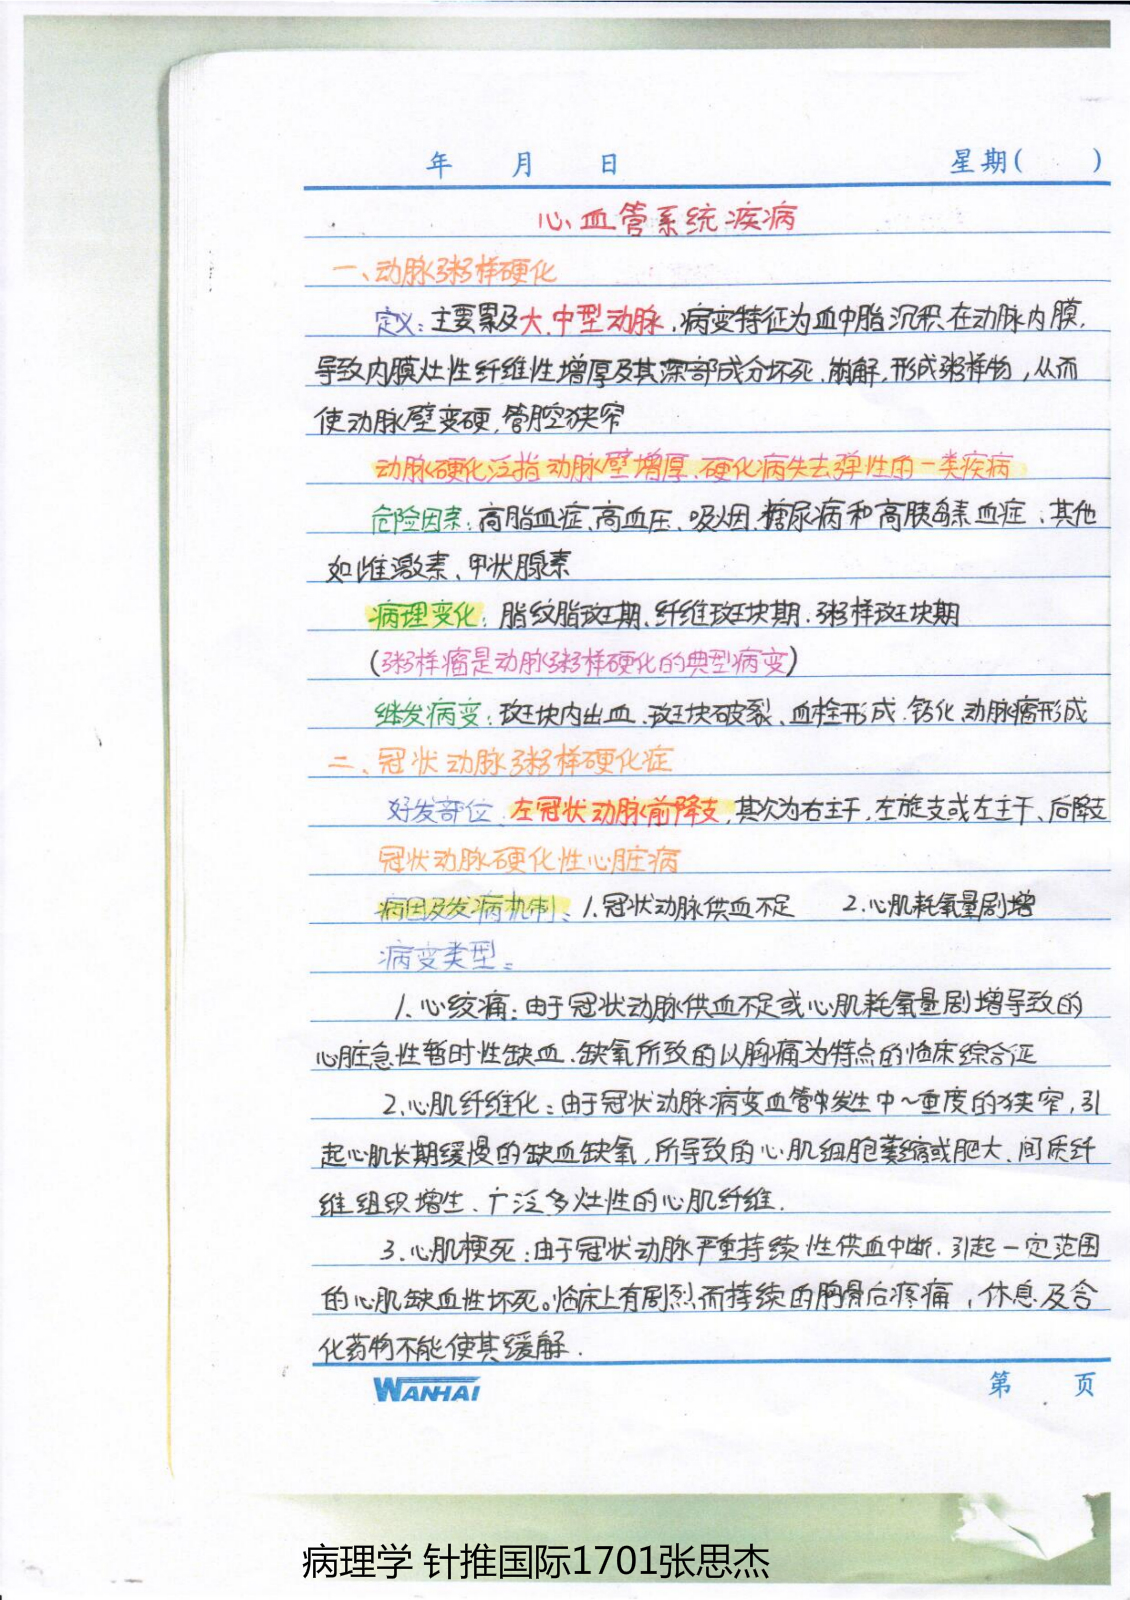 年 月 日 星期( )
心血管系统疾病
一、动脉粥样硬化
定义:主要累及大、中型动脉,病变特征为血中脂沉积在动脉内膜,
导致内膜灶性纤维性增厚及其深部成分坏死、崩解,形成粥样物,从而
使动脉壁变硬,管腔狭窄
动脉硬化泛指动脉壁增厚、硬化病失去弹性的一类疾病
危险因素:高脂血症、高血压、吸烟、糖尿病和高胰岛素血症、其他
如雌激素、甲状腺素
病理变化:脂纹脂斑期、纤维斑块期、粥样斑块期
(粥样瘤是动脉粥样硬化的典型病变)
继发病变:斑块内出血、斑块破裂、血栓形成、钙化、动脉瘤形成
二、冠状动脉粥样硬化症
好发部位:左冠状动脉前降支,其次为右主干,左旋支或左主干、后降支
冠状动脉硬化性心脏病
病因及发病机制:1.冠状动脉供血不足 2.心肌耗氧量剧增
病变类型:
1.心绞痛:由于冠状动脉供血不足或心肌耗氧量剧增导致的
心脏急性暂时性缺血、缺氧所致的以胸痛为特点的临床综合征
2.心肌纤维化:由于冠状动脉病变血管中发生中~重度的狭窄,引
起心肌长期缓慢的缺血缺氧,所导致的心肌细胞萎缩或肥大、间质纤
维组织增生、广泛多灶性的心肌纤维.
3.心肌梗死:由于冠状动脉严重持续性供血中断.引起一定范围
的心肌缺血性坏死。临床上有剧烈而持续的胸骨后疼痛,休息及含
化药物不能使其缓解.
WANHAI 第 页
病理学 针推国际1701张思杰